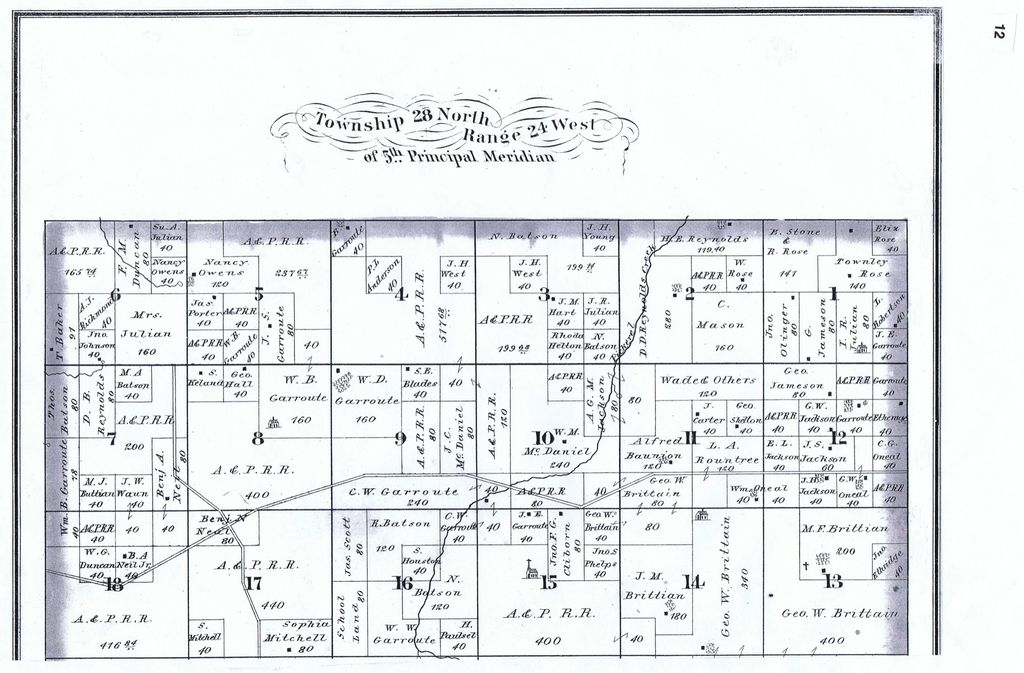 12
Township 28 North
Range 24 West
of 5th Principal Meridian
A.&P.R.R.
165 74
F. M. Duncan
80
Su. A. Julian
40
Nancy Owens
40
Nancy Owens
120
A.&P.R.R.
237 67
B. Garroute
40
P.L. Anderson
40
A.&P.R.R.
517 68
J.H. West
40
N. Batson
J.H. Young
40
J.H. West
40
199
H.E. Reynolds
119.40
A&PRR
40
W. Rose
40
E. Stone
&
R. Rose
141
Eliz Rose
40
Townley Rose
120
6
5
4
3
2
1
T. Baker
97
A.J. Richmond
40
Jno. Johnson
40
Mrs. Julian
160
Jas. Porter
40
A&PRR
40
A&PRR
40
W.B. Garroute
40
J. S. Garroute
80
40
A&PRR
199 68
J.M. Hart
40
J.R. Julian
40
Rhoda Helton
40
N. Batson
40
Pickerel creek
D.D. Reynolds
280
C. Mason
160
Jno. Olinger
80
G. Jameson
80
J.R. Julian
80
L. Robertson
40
J.E. Garroute
40
Thos. Batson
80
D. B. Reynolds
80
M A Batson
40
A&P.R.R.
200
S. Keland
40
Geo. Hall
40
W. B. Garroute
160
W. D. Garroute
160
S.E. Blades
40
40
A.&P.R.R.
80
J. C. McDaniel
80
A.&P.R.R.
120
A&PRR
40
A. G. M. Jackson
80
80
W. M. McDaniel
240
Wade & Others
120
Geo. Jameson
80
A&PRR
40
Garroute
40
J. Carter
40
Geo. Skelton
40
A&PRR
40
G.W. Jackson
40
Garroute
40
Etherage
40
7
8
9
10
11
12
Wm. B. Garroute
78
M. J. Buttian
40
J.W. Waun
40
Benj A. Neil
80
A. & P. R. R.
400
C.W. Garroute
240
40
A&PRR
80
40
Alfred Baunion
120
L. A. Rountree
120
E.L. Jackson
40
J.S. Jackson
60
C.G. Oneal
40
Geo. W. Brittain
80
Wm. Oneal
80
J.H.S. Jackson
40
G.W. Oneal
40
A&PRR
40
40
A&PRR
40
40
40
Benj N Neal
80
W.G. Duncan
40
B.A Neil Jr.
40
A.&P.R.R.
440
Jas. Scott
80
R. Batson
120
C.W. Garroute
40
40
J.E. Garroute
40
Jno. F.G. Cliborn
80
Geo W. Brittain
40
Jno.S Phelps
40
80
Geo. W. Brittain
340
M.F. Brittian
200
Jno. Ethridge
40
18
17
16
15
14
13
A.&P.R.R.
416 84
S. Mitchell
40
Sophia Mitchell
80
School Land
80
S. Houston
40
N. Batson
120
W. W. Garroute
H. Paulsel
40
A.&P.R.R.
400
J.M. Brittian
180
40
Geo. W. Brittain
400